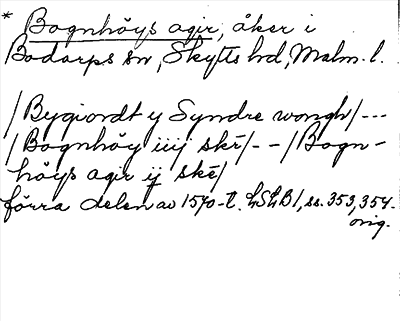 * Bognhöys agir, åker i
Bodarps sn, Skytts hd, Malm. l.
/Bygiordt y Syndre wongh/---
/Bognhöy iiij skē/--/Bogn-
höys agir ij skē/
förra delen av 1570-t. LSLB 1, ss. 353, 354.
orig.